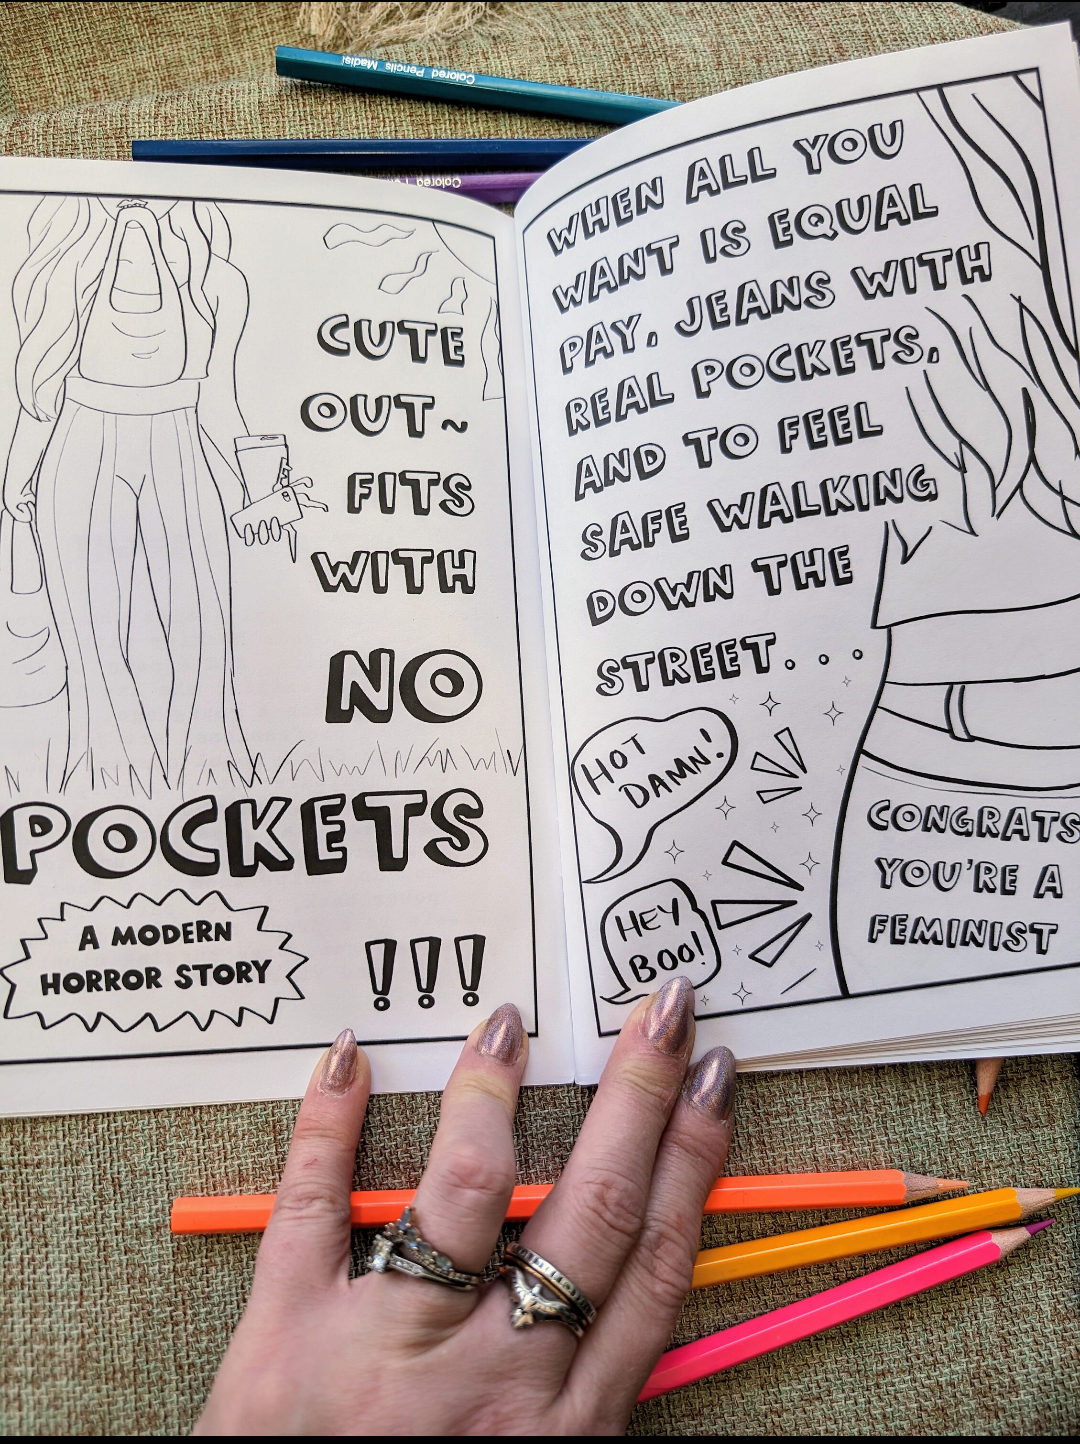 Colored Pencils Madisi
Colored
CUTE
OUT~
FITS
WITH
NO
POCKETS
A MODERN
HORROR STORY
!!!
WHEN ALL YOU
WANT IS EQUAL
PAY, JEANS WITH
REAL POCKETS,
AND TO FEEL
SAFE WALKING
DOWN THE
STREET...
HOT
DAMN!
HEY
BOO!
CONGRATS
YOU'RE A
FEMINIST